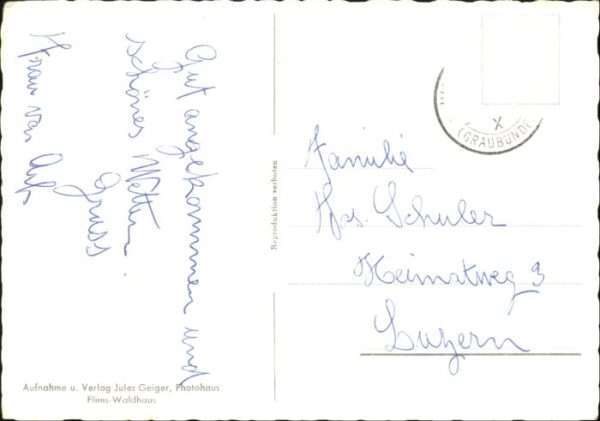 Gut angekommen und
schönes Wetter.
Gruss
Frau von Arb
(GRAUBÜNDE
Familie
Jos. Schuler
Heimatweg 3
Luzern
Reproduktion verboten
Aufnahme u. Verlag Jules Geiger, Photohaus
Flims-Waldhaus